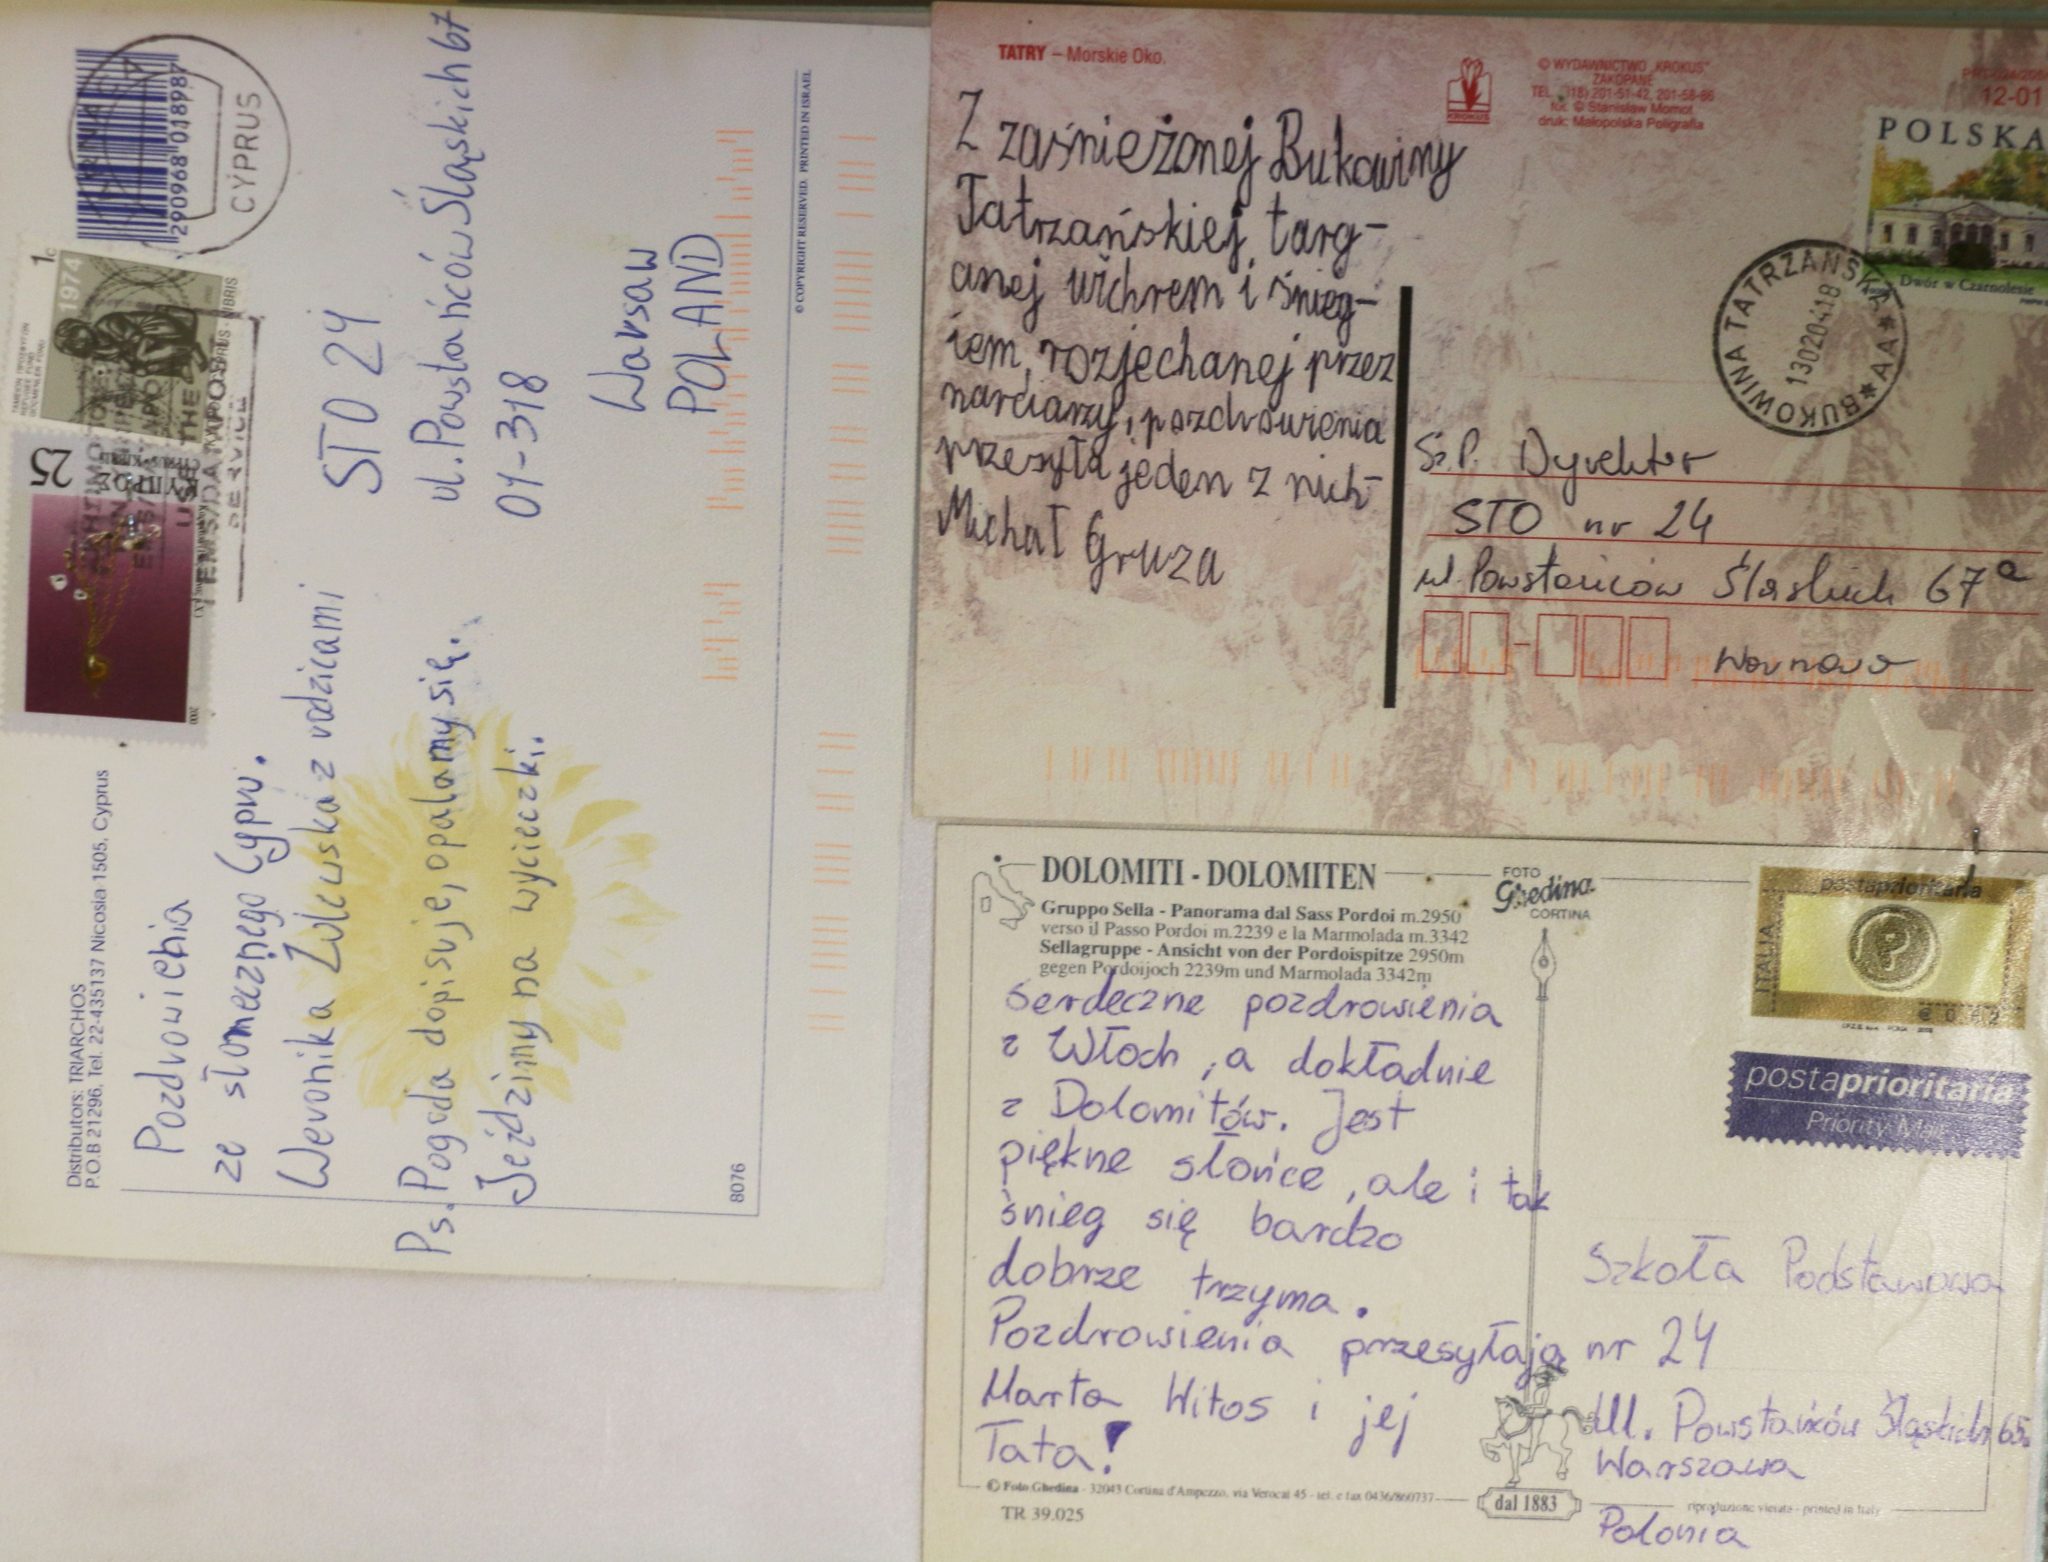 Distributors: TRIARCHOS
P.O.B 21296, Tel. 22-435137 Nicosia 1505, Cyprus
2 90968 018987
CYPRUS
1c
1974
25
2000
USE THE
EMS/DATAPOST
SERVICE
Pozdrowienia
ze słonecznego Cypru.
Weronika Zulewska z rodzicami
Ps. Pogoda dopisuje, opalamy się.
Jeździmy na wycieczki.
STO 24
ul. Powstańców Śląskich 67
01-318
Warsaw
POLAND
8076
© COPYRIGHT RESERVED. PRINTED IN ISRAEL
TATRY – Morskie Oko.
KROKUS
© WYDAWNICTWO „KROKUS"
ZAKOPANE
TEL. (18) 201-51-42, 201-58-66
fot. © Stanisław Momot
druk: Małopolska Poligrafia
12-01
POLSKA
Dwór w Czarnolesie
BUKOWINA TATRZAŃSKA * AA *
Z zaśnieżonej Bukowiny
Tatrzańskiej, targ-
anej wichrem i śnieg-
iem, rozjechanej przez
narciarzy, pozdrowienia
przesyła jeden z nich-
Michał Gruza
Sz.P. Dyrektor
STO nr 24
ul. Powstańców Śląskich 67a
Warszawa
DOLOMITI - DOLOMITEN
Gruppo Sella - Panorama dal Sass Pordoi m.2950
verso il Passo Pordoi m.2239 e la Marmolada m.3342
Sellagruppe - Ansicht von der Pordoispitze 2950m
gegen Pordoijoch 2239m und Marmolada 3342m
FOTO
Ghedina
CORTINA
postaprioritaria
ITALIA
postaprioritaria
Priority Mail
Serdeczne pozdrowienia
z Włoch, a dokładnie
z Dolomitów. Jest
piękne słońce, ale i tak
śnieg się bardzo
dobrze trzyma.
Pozdrowienia przesyłają
Marta Witos i jej
Tata!
Szkoła Podstawowa
nr 24
Ul. Powstańców Śląskich 65a
Warszawa
Polonia
© Foto Ghedina - 32043 Cortina d'Ampezzo, via Verocai 45 - tel. e fax 0436/860737
dal 1883
riproduzione vietata - printed in Italy
TR 39.025